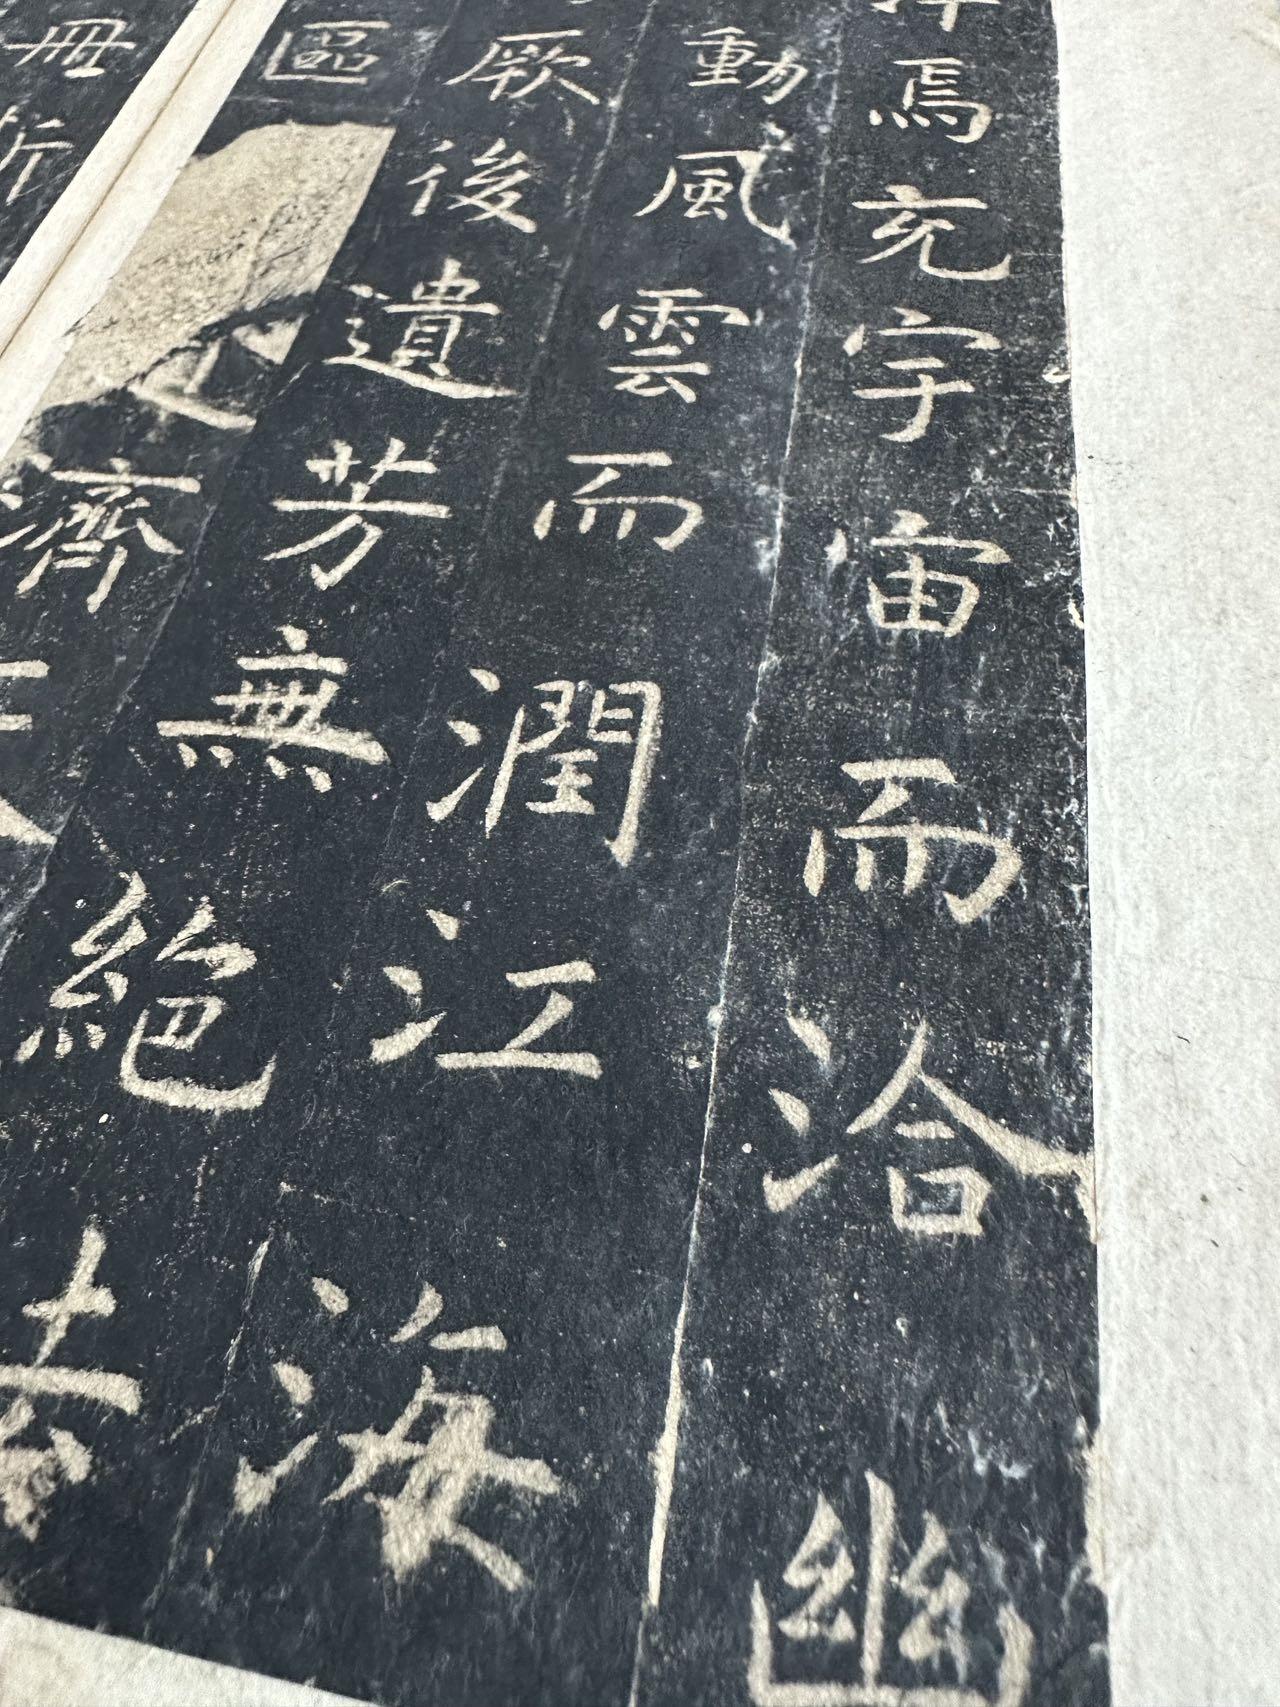 焉充宇宙而洽幽
動風雲而潤江海
厥後遺芳無絕
區
濟
冊